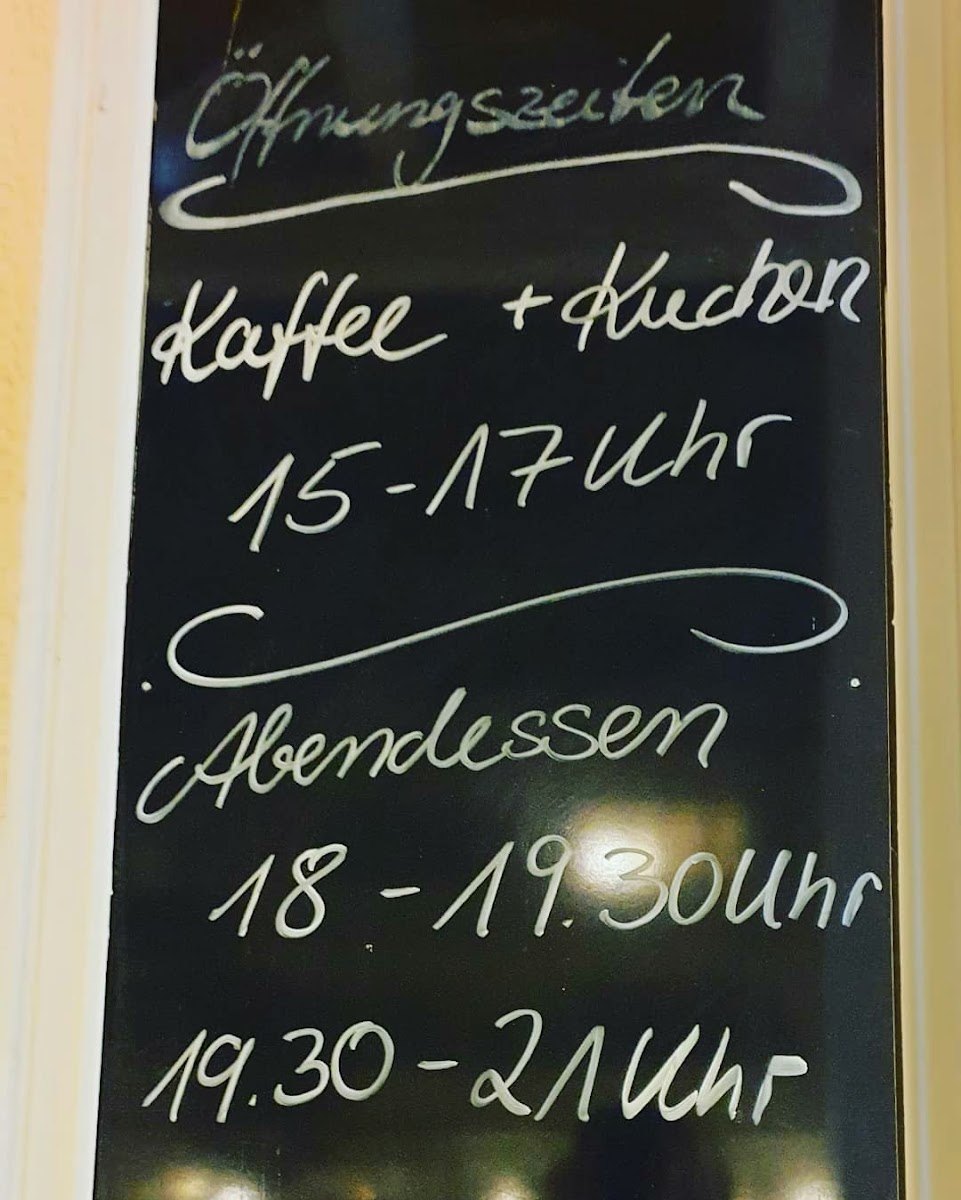 Öffnungszeiten
Kaffee + Kuchen
15-17 Uhr
Abendessen
18 - 19.30 Uhr
19.30 - 21 Uhr